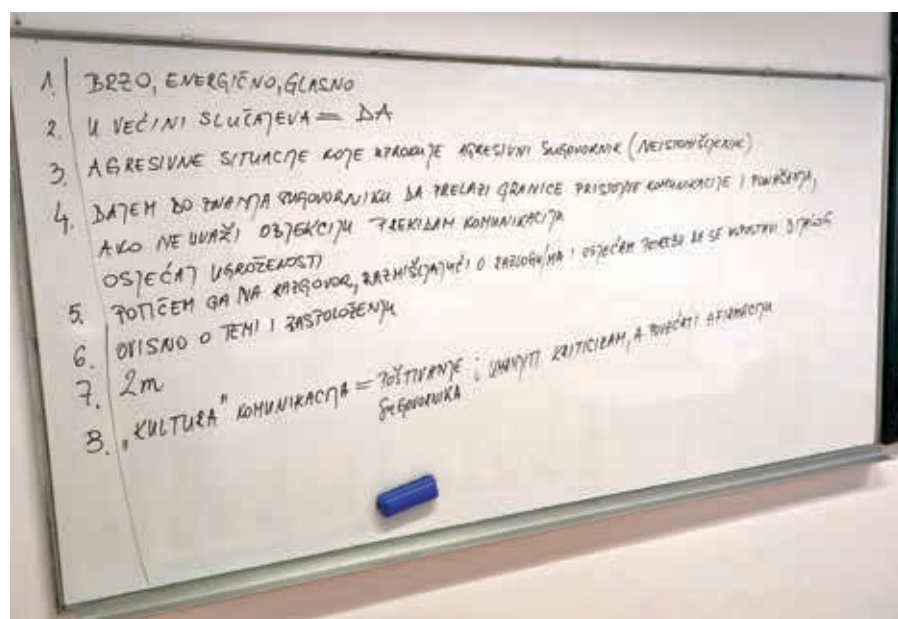 1. BRZO, ENERGIČNO, GLASNO
2. U VEĆINI SLUČAJEVA = DA
3. AGRESIVNE SITUACIJE KOJE UZROKUJE AGRESIVNI SUGOVORNIK (NEISTOMIŠLJENIK)
4. DAJEM DO ZNANJA SUGOVORNIKU DA PRELAZI GRANICE PRISTOJNE KOMUNIKACIJE I PONAŠANJA,
AKO NE UVAŽI OBJEKCIJU PREKIDAM KOMUNIKACIJU
OSJEĆAJ UGROŽENOSTI
5. POTIČEM GA NA RAZGOVOR, RAZMIŠLJAJUĆI O RAZLOGU/IMA I OSJEĆAM POTREBU DA SE USPOSTAVI DIJALOG
6. OVISNO O TEMI I RASPOLOŽENJU
7. 2m
8. "KULTURA" KOMUNIKACIJA = POŠTIVANJE ; UMANJITI KRITICIZAM, A POVEĆATI AFIRMACIJU
SUGOVORNIKA